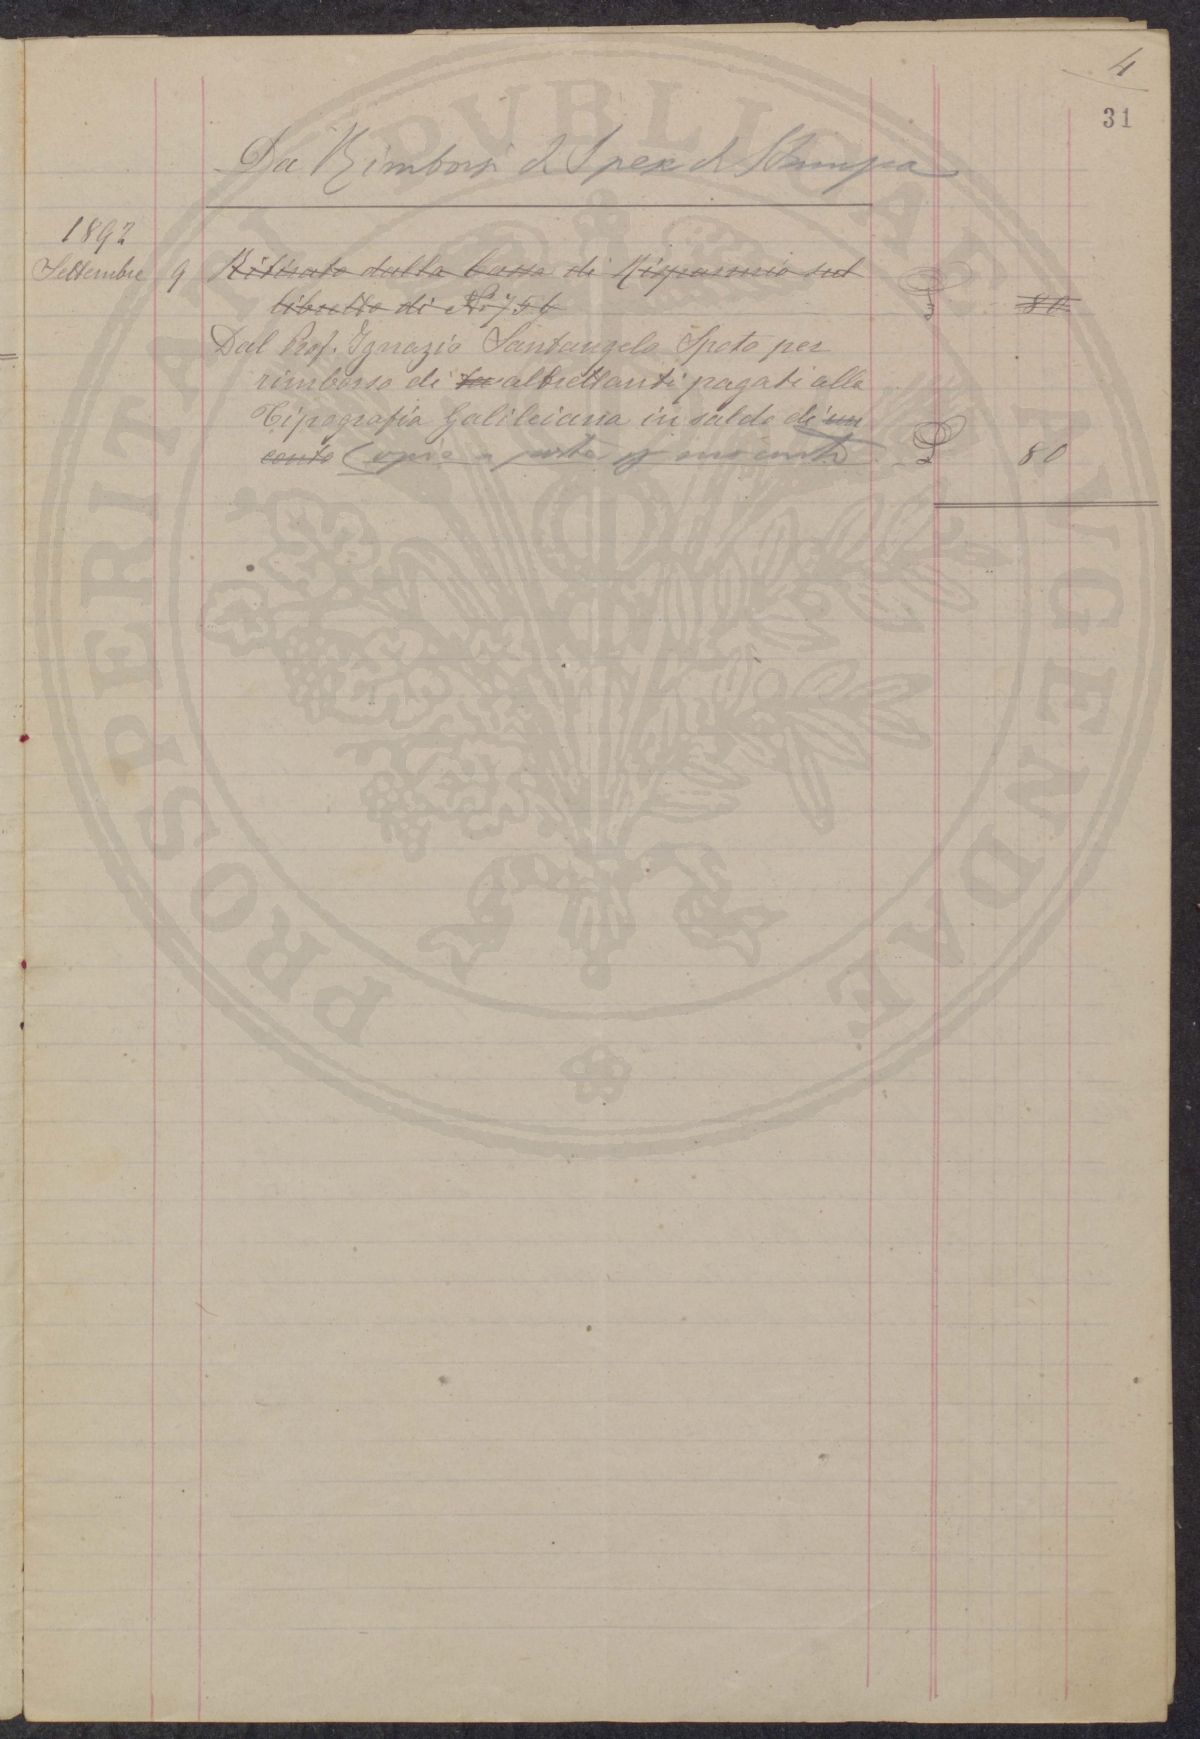 4
31
Da Rimborsi di Spese di Stampa
1892
Settembre 9 Ritirato dalla Cassa di Risparmio sul £ 80
libretto di N.o 756
Dal Prof. Ignazio Santangelo Spoto per
rimborso di altrettanti pagati alla
Tipografia Galileiana in saldo di un
conto copie a parte £ 80
PROSPERITATI PVBLICAE AVGENDAE